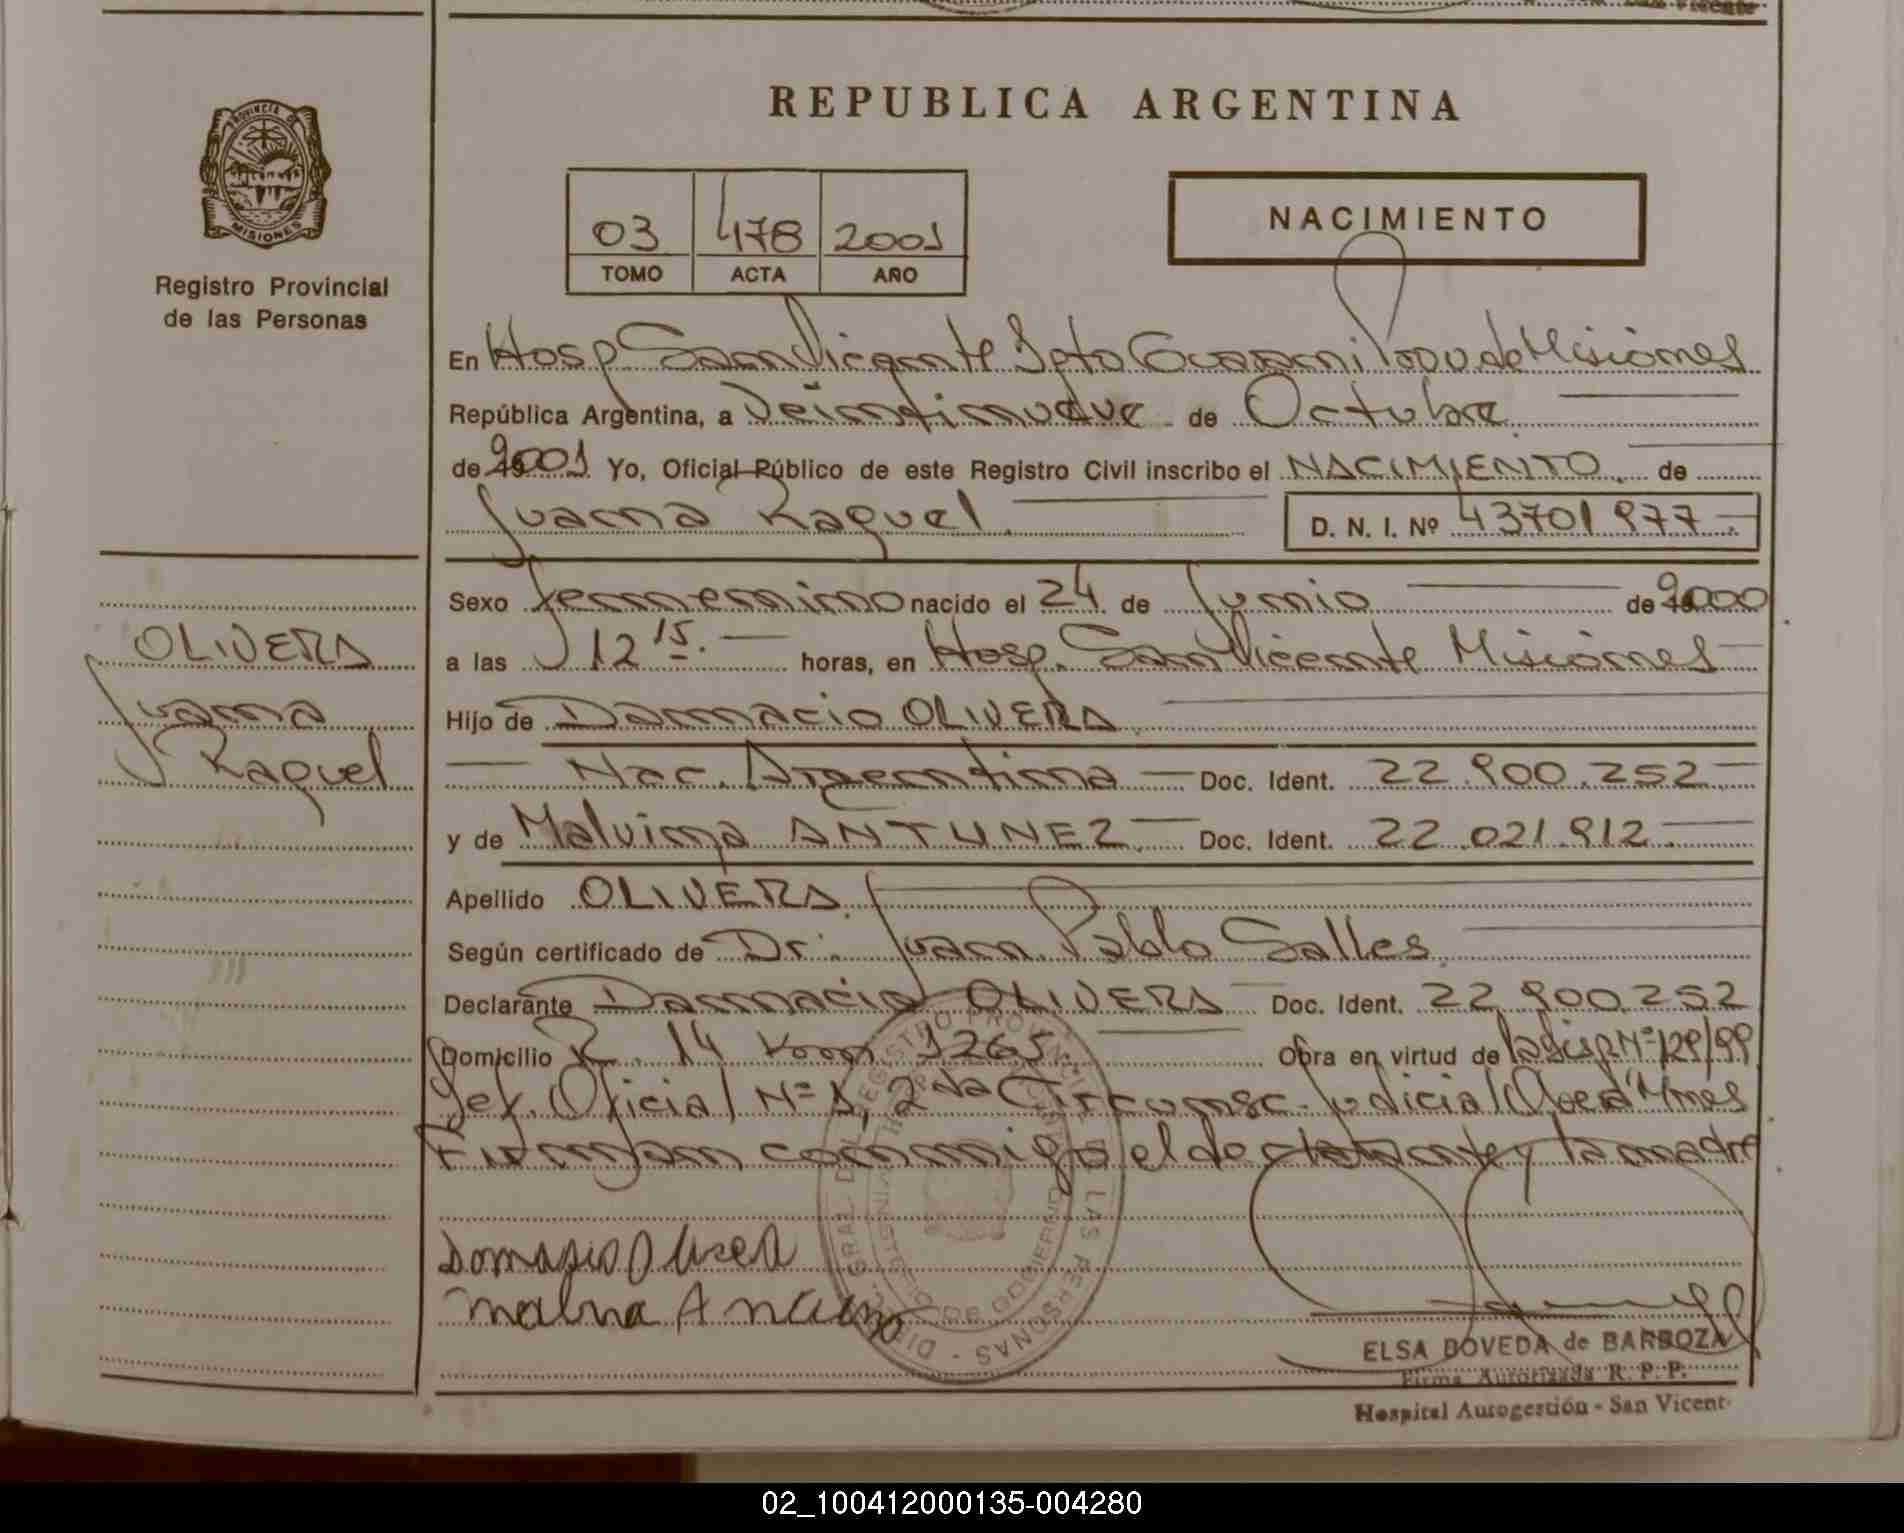 REPUBLICA ARGENTINA
PROVINCIA DE
MISIONES
Registro Provincial
de las Personas
03 478 2001
TOMO ACTA AÑO
NACIMIENTO
En Hosp San Vicente Dpto Guarani Prov de Misiones
República Argentina, a Veintinueve de Octubre
de 2001 Yo, Oficial Público de este Registro Civil inscribo el NACIMIENTO de
Juana Raquel D. N. I. Nº 43701977
Sexo femenino nacido el 24 de Junio de 2000
a las 12 15 horas, en Hosp. San Vicente Misiones
Hijo de Damacio OLIVERA
Nac. Argentina Doc. Ident. 22.900.252
y de Malvina ANTUNEZ Doc. Ident. 22.021.912
Apellido OLIVERA
Según certificado de Dr. Juan Pablo Salles
Declarante Damacio OLIVERA Doc. Ident. 22.900.252
Domicilio R. 14 Km 1265. Obra en virtud de la Disp Nº 129/99
Def. Oficial Nº 1, 2da Circunsc. Judicial Oberá Mnes
Firman conmigo el declarante y la madre
OLIVERA
Juana
Raquel
ELSA BOVEDA de BARBOZA
Firma Autorizada R. P. P.
Hospital Autogestión - San Vicent
02_100412000135-004280